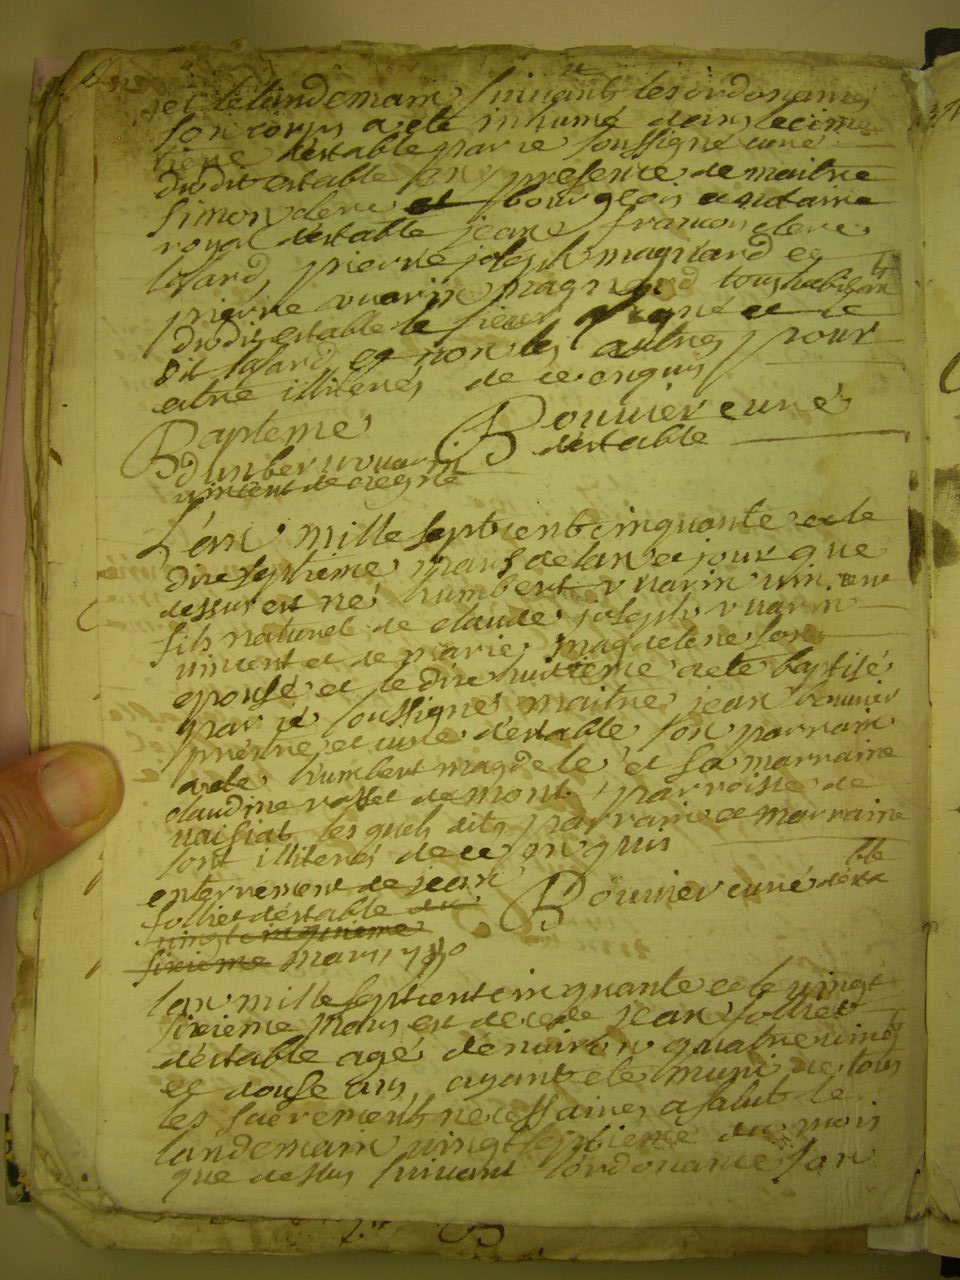 et le landemain suivant les ordonances
son corps a eté inhumé dans le cime
tiere destable par ie soussigné curé
dudit estable en presence de maitre
simon clerc et bourgeois notaire
royal destable jean francois clerc
pierre joseph magnard et
pierre vuarin magnard tous habitants
dudit estable le sieur signé et le
dit et non les autres pour
etre illiterés de ce enquis
Bouvier curé
destable
Bapteme
dumbert vuarin
vincent de
L'an mille sept cent cinquante et le
dix septieme mars de lan et jour que
dessus est né humbert vuarin vincent
fils naturel de claude joseph vuarin
vincent et de marie magdelene son
epouse et le dix huitieme a eté baptisé
par ie soussigné maitre jean bouvier
pretre et curé destable son parrain
a eté humbert magdelé et sa marraine
claudine de mont parroisse de
les quels dits parrain et marraine
sont illiterés de ce enquis
Bouvier curé desta
ble
enterrement de jean
solliet destable du
vingt cinquieme
sixieme mars 1750
lan mille sept cent cinquante et le vingt
sixieme mars est decedé jean solliet
destable agé denviron quatre vingt
et douse ans, ayant eté muni de tous
les sacrements necessaires a salut le
landemain vingt septieme du mois
que dessus suivant lordonance son